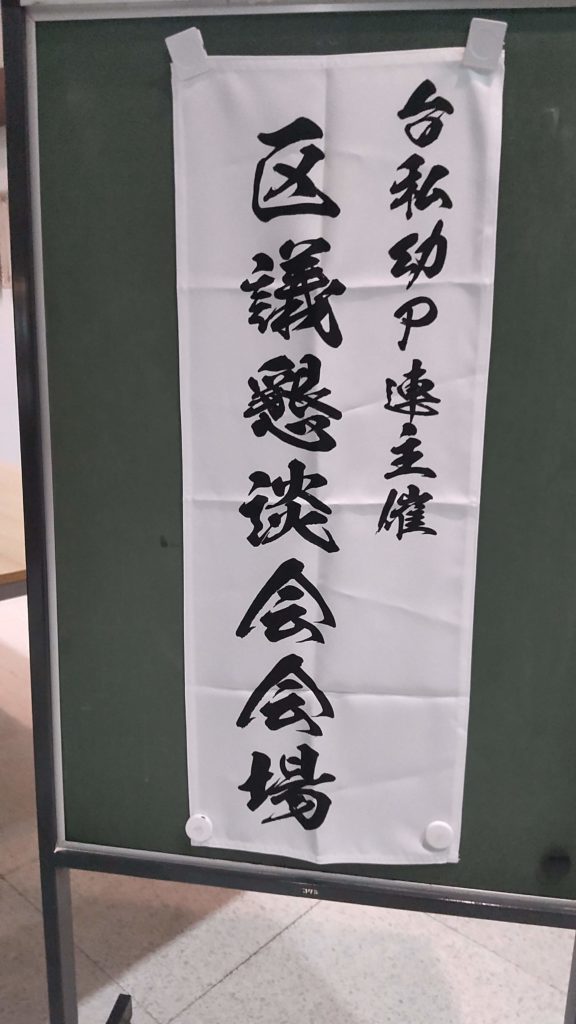 台私幼P連主催
区議懇談会会場
375